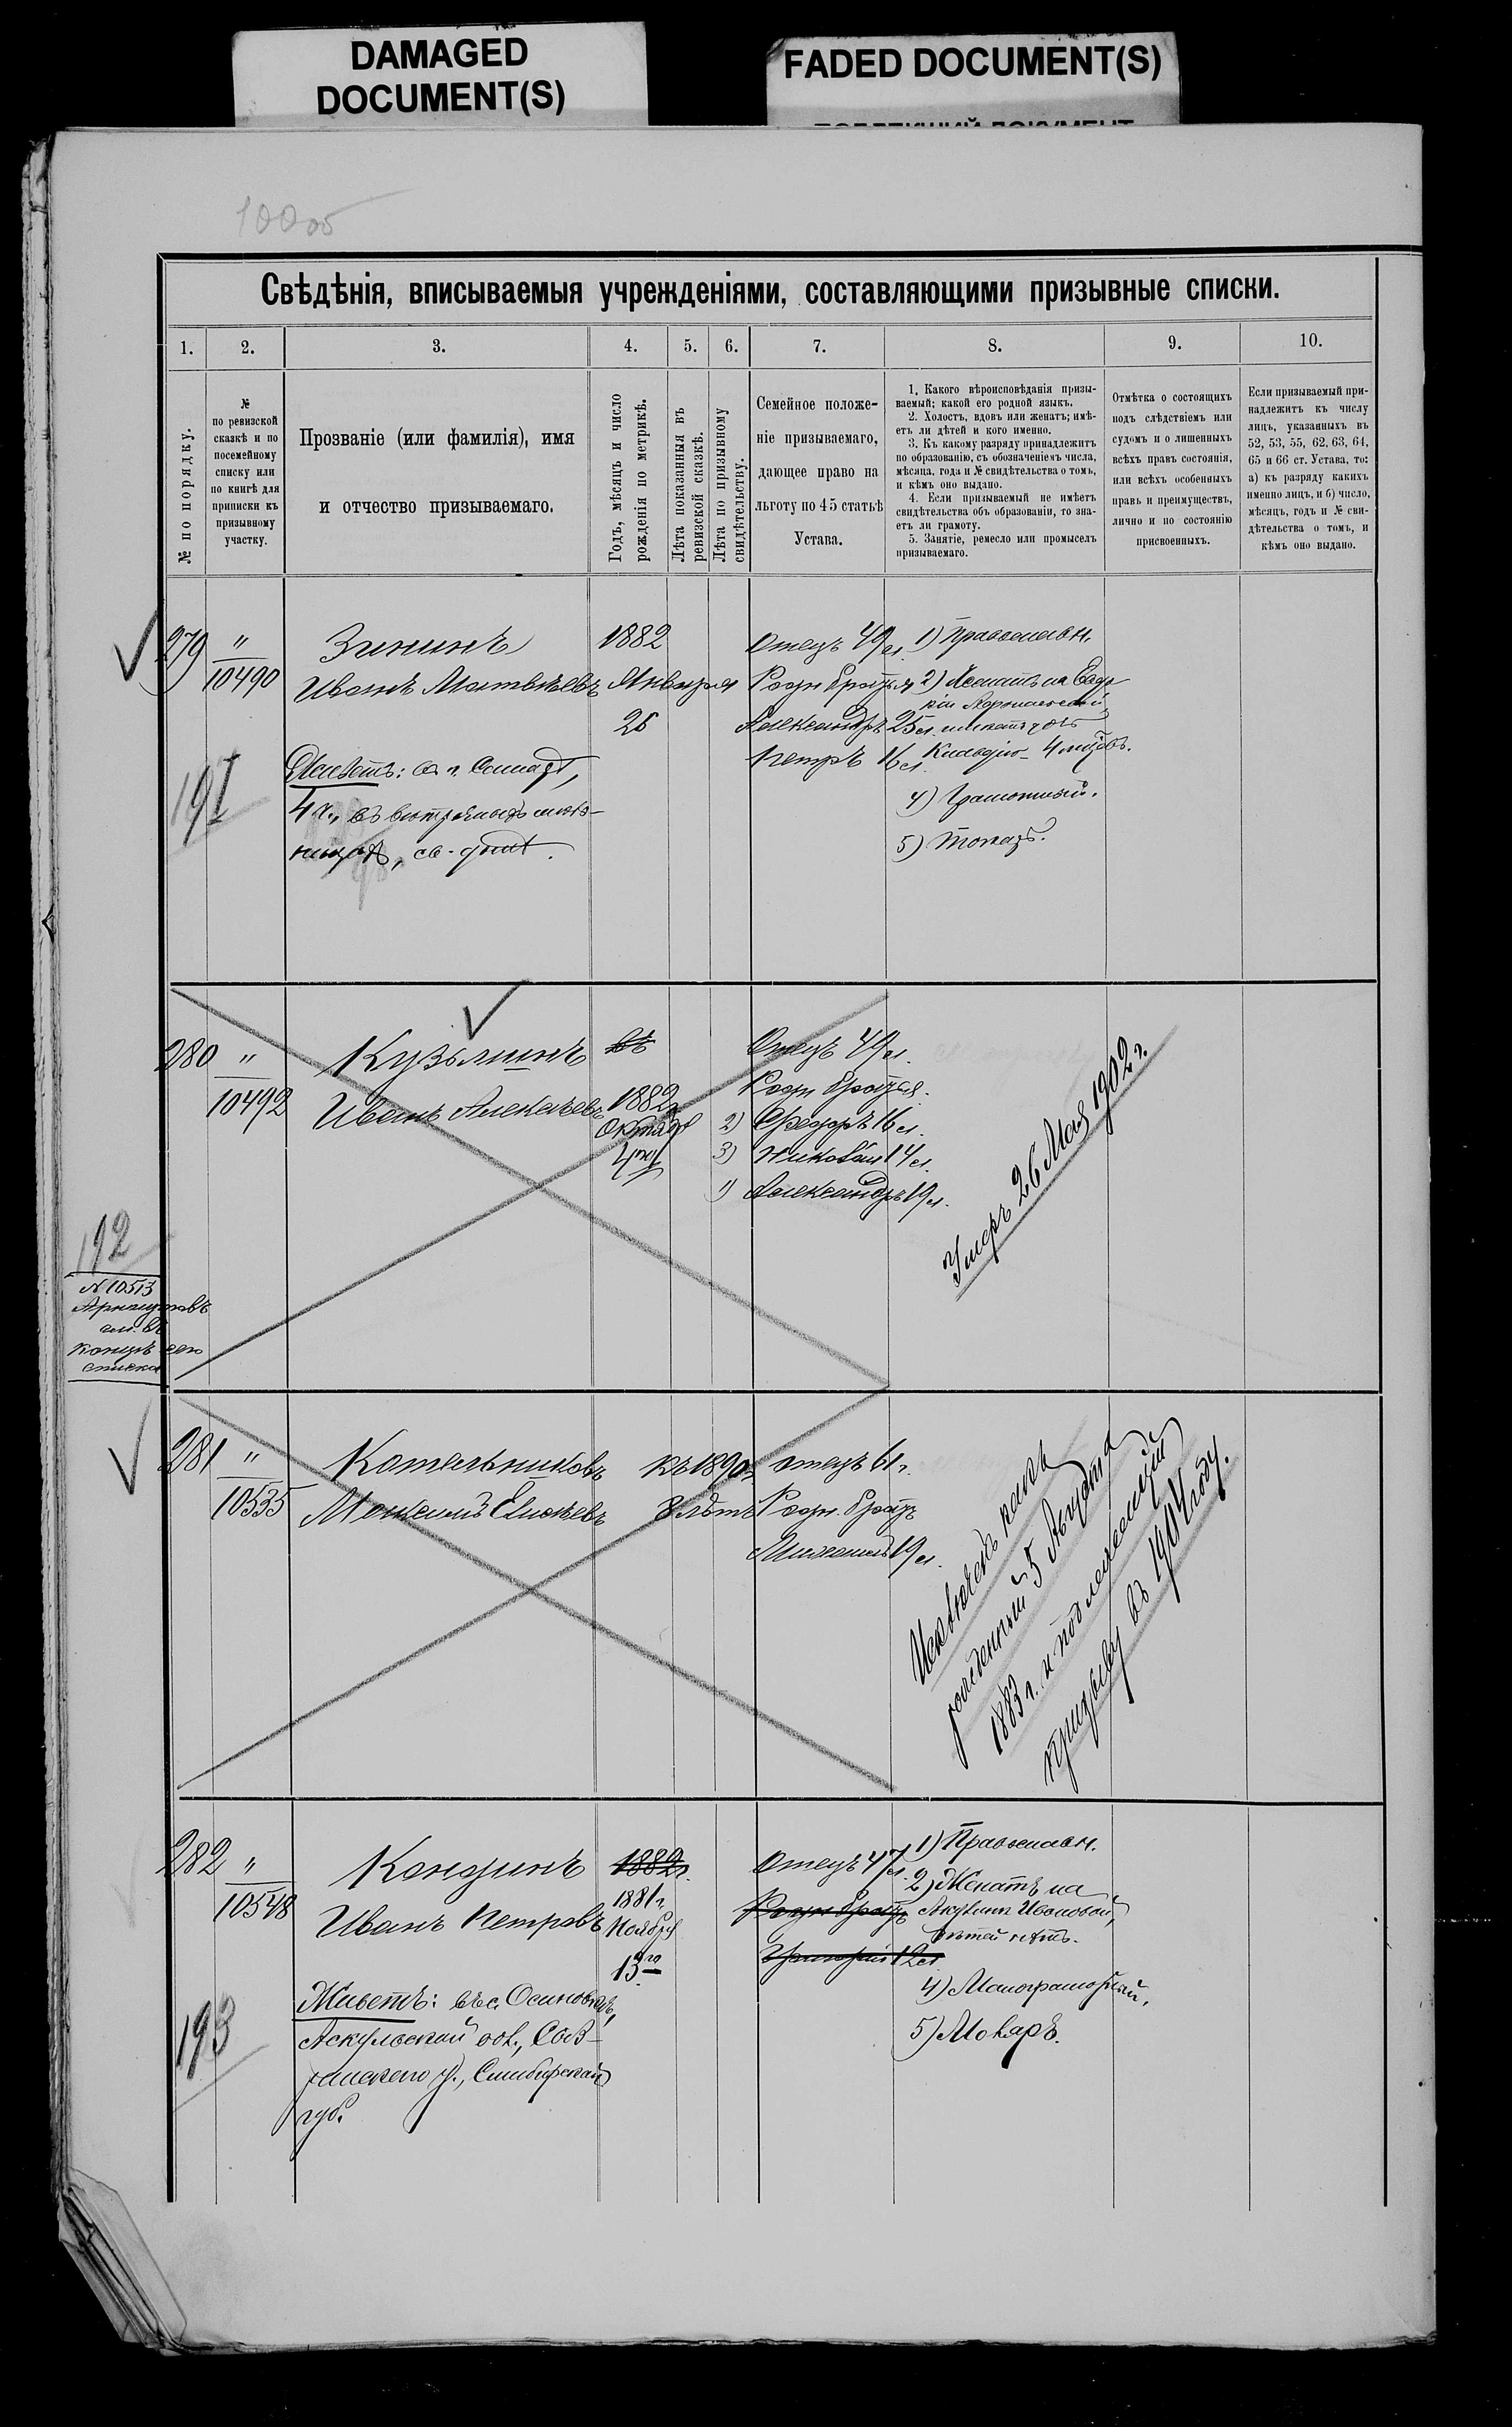 DAMAGED
DOCUMENT(S)
FADED DOCUMENT(S)
100об
Свѣдѣнія, вписываемыя учрежденіями, составляющими призывные списки.
1. 2. 3. 4. 5. 6. 7. 8. 9. 10.
№ по порядку.
№
по ревизской
сказкѣ и по
посемейному
списку или
по книгѣ для
приписки къ
призывному
участку.
Прозваніе (или фамилія), имя
и отчество призываемаго.
Годъ, мѣсяцъ и число
рожденія по метрикѣ.
Лѣта показанныя въ
ревизской сказкѣ.
Лѣта по призывному
свидѣтельству.
Семейное положе-
ніе призываемаго,
дающее право на
льготу по 45 статьѣ
Устава.
1. Какого вѣроисповѣданія призы-
ваемый; какой его родной языкъ.
2. Холостъ, вдовъ или женатъ; имѣ-
етъ ли дѣтей и кого именно.
3. Къ какому разряду принадлежитъ
по образованію, съ обозначеніемъ числа,
мѣсяца, года и № свидѣтельства о томъ,
и кѣмъ оно выдано.
4. Если призываемый не имѣетъ
свидѣтельства объ образованіи, то зна-
етъ ли грамоту.
5. Занятіе, ремесло или промыселъ
призываемаго.
Отмѣтка о состоящихъ
подъ слѣдствіемъ или
судомъ и о лишенныхъ
всѣхъ правъ состоянія,
или всѣхъ особенныхъ
правъ и преимуществъ,
лично и по состоянію
присвоенныхъ.
Если призываемый при-
надлежитъ къ числу
лицъ, указанныхъ въ
52, 53, 55, 62, 63, 64,
65 и 66 ст. Устава, то:
а) къ разряду какихъ
именно лицъ, и б) число,
мѣсяцъ, годъ и № сви-
дѣтельства о томъ, и
кѣмъ оно выдано.
279 "
10490
Зининъ
Иванъ Матвѣевъ
1882
Января
26
Отецъ 49 л.
Родн братья
Александръ 25 л.
Петръ 16 л.
1) Православн.
2) Женатъ на
4) Грамотный.
5) Токарь.
191
Живетъ: въ г.
280 "
10492
Кузьминъ
Иванъ Алексѣевъ
въ
1882
Октября
4го
Отецъ 49 л.
Родн братья:
2) Федоръ 16 л.
3) Николай 14 л.
1) Александръ 19 л.
Умеръ 26 Мая 1902 г.
192
№ 10513
см. въ
концѣ сего
списка
281 "
10535
Котельниковъ
Елисѣевъ
къ 1890 г.
8 лѣтъ
отецъ 61 г.
Родн. братъ
Михаилъ 19 л.
Исключенъ какъ
рожденный 5 Августа
1883 г. и подлежащій
призыву въ 1904 году.
282 "
10548
Кондинъ
Иванъ Петровъ
1882 г.
1881 г.
Ноября
13го
Отецъ 47 л.
Родн братъ
Григорій 12 л.
1) Православн.
2) Женатъ на
Акулинѣ Ивановой,
дѣтей нѣтъ.
4) Малограмотный.
5) Токарь.
193
Живетъ: въ с. Осиновкѣ,
Аскульской вол., Сыз-
ранскаго у., Симбирской
губ.